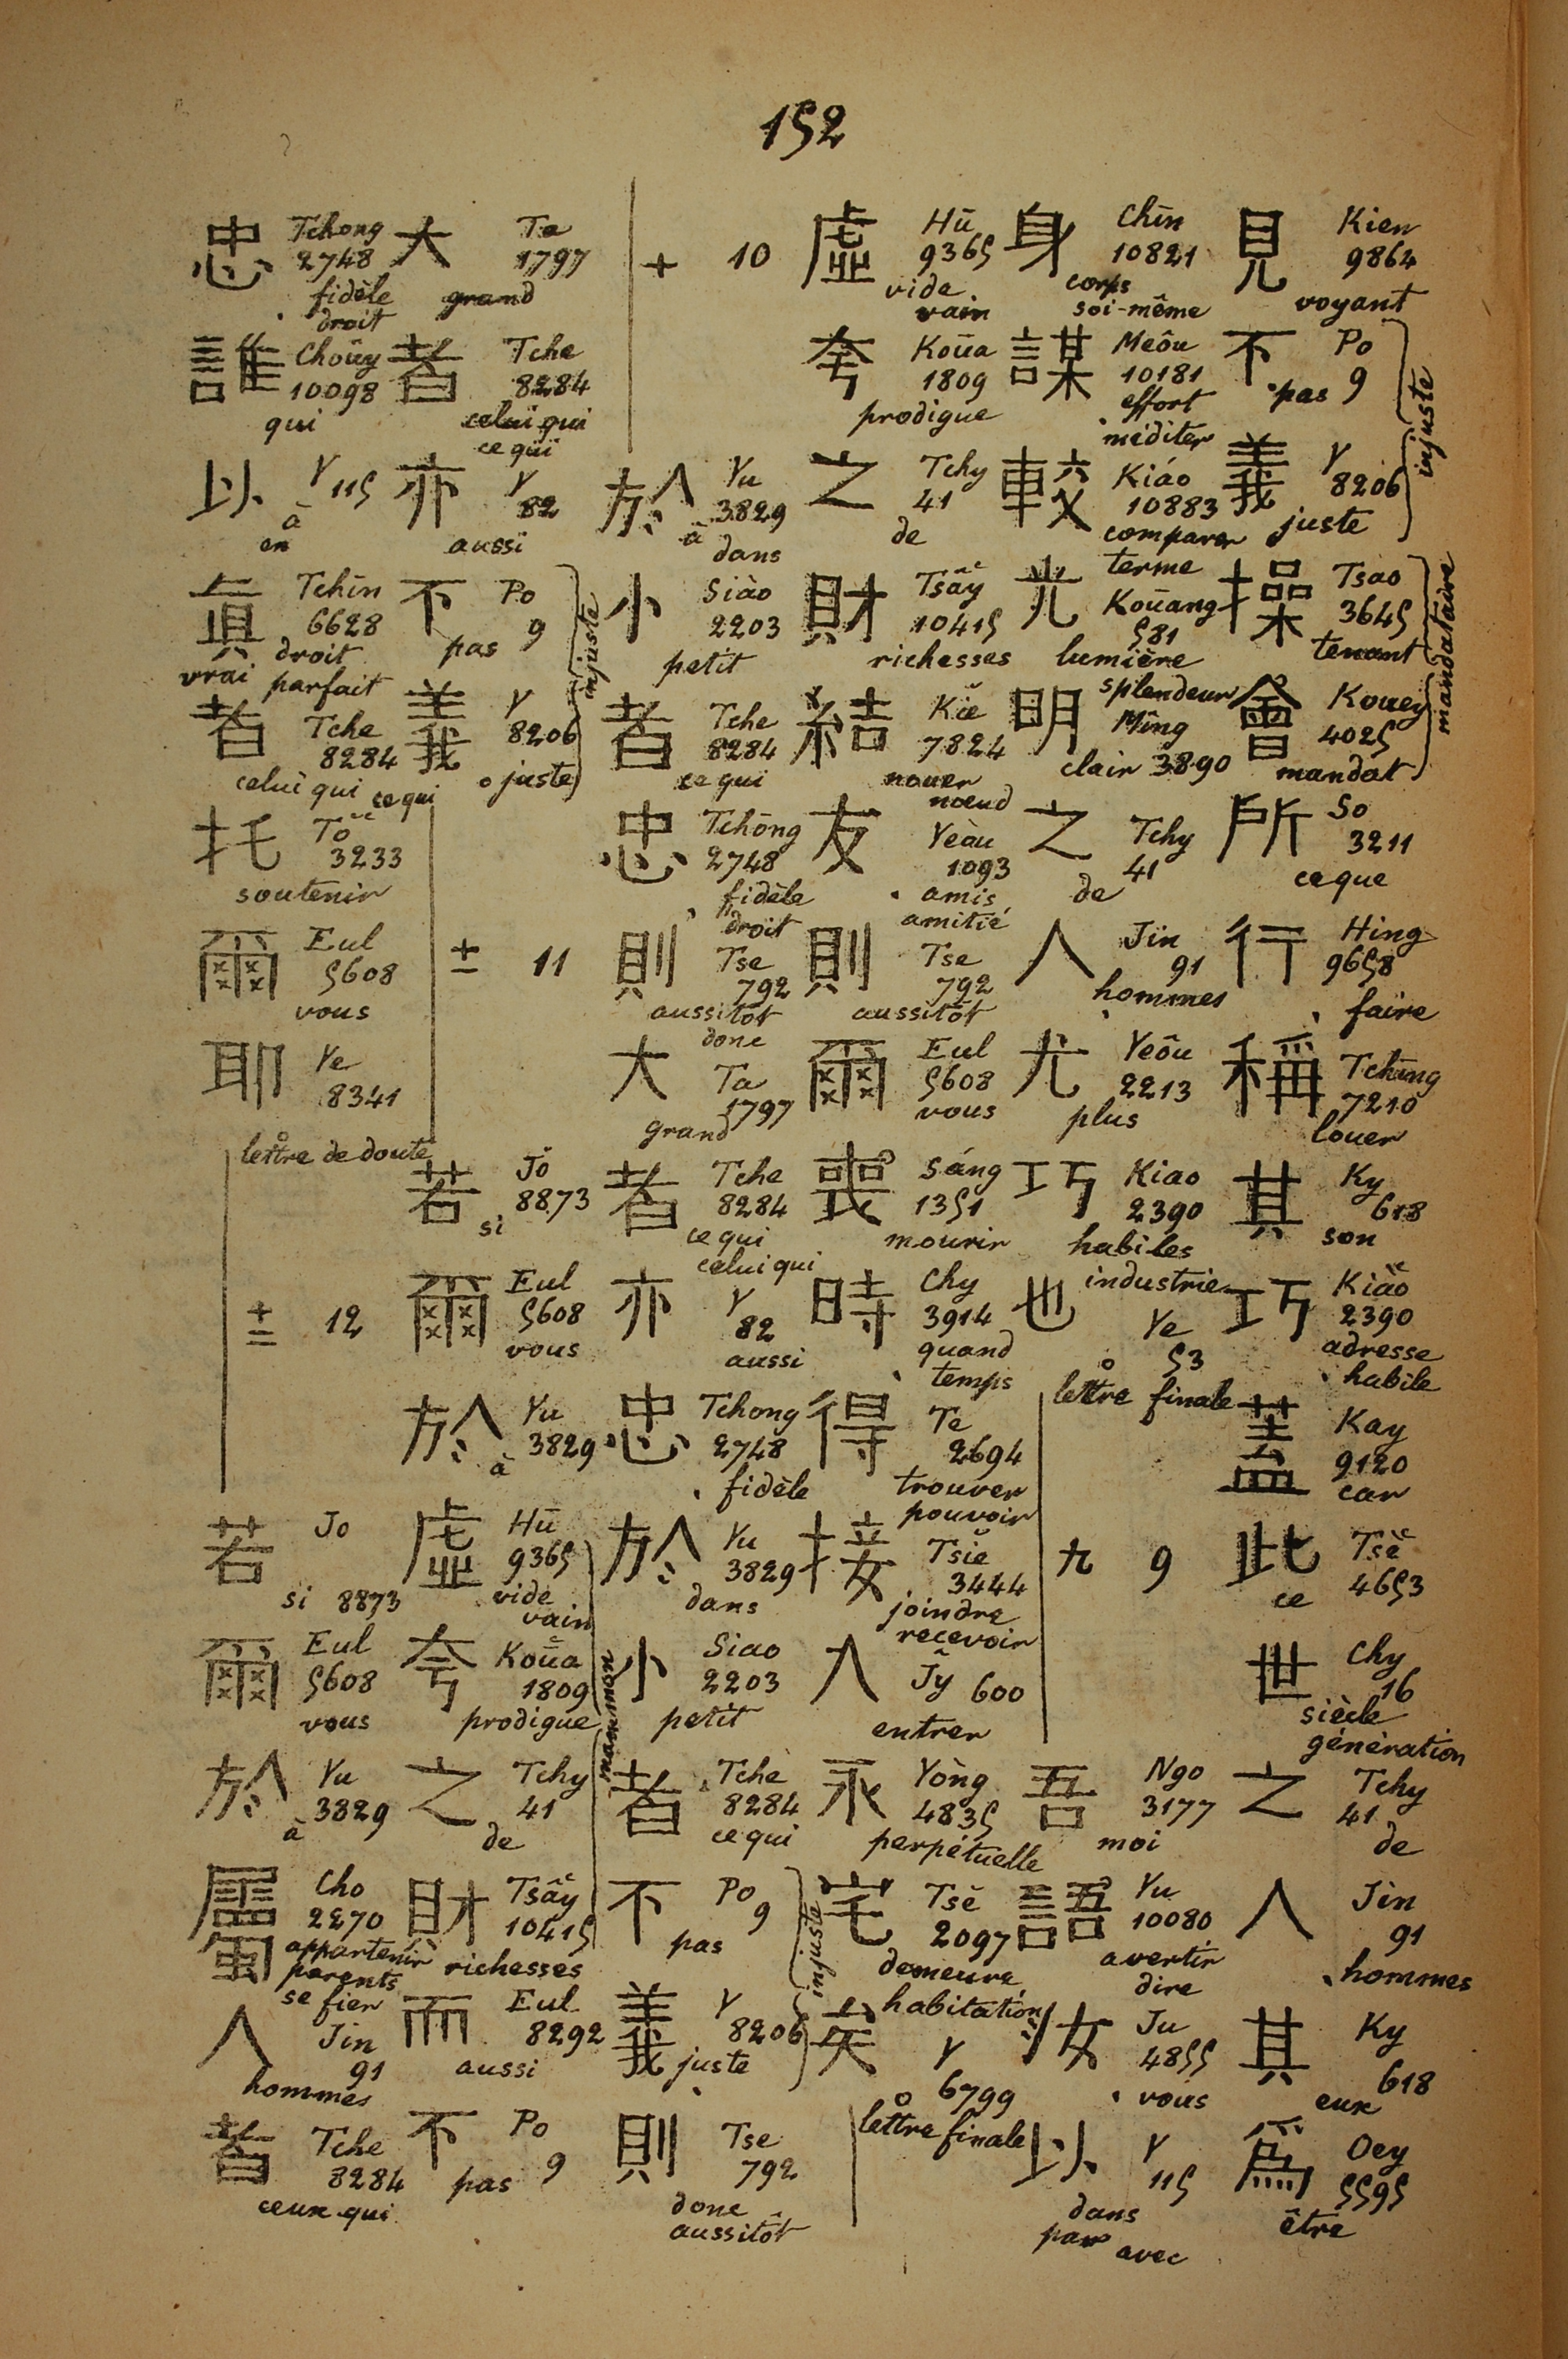 152
見 Kien 9864 voyant
不 Po 9 pas
義 Y 8206 juste
injuste
操 Tsao 3645 tenant
會 Kouey 4025 mandat
mandataire
所 So 3211 ce que
行 Hing 9658 faire
稱 Tching 7210 louer
其 Ky 618 son
巧 Kiǎo 2390 adresse habile
蓋 Kay 9120 car
此 Tsě 4653 ce
世 Chy 16 siècle génération
之 Tchy 41 de
人 Jin 91 hommes
其 Ky 618 eux
爲 Oey 5595 être
身 Chīn 10821 corps soi-même
謀 Meôu 10181 effort méditer
較 Kiáo 10883 comparer terme
光 Koūang 581 lumière splendeur
明 Mîng 3890 clair
之 Tchy 41 de
人 Jin 91 hommes
尤 Yeôu 2213 plus
巧 Kiao 2390 habiles industrie
也 Ye 53 lettre finale
九 9
吾 Ngo 3177 moi
語 Yu 10080 avertir dire
汝 Ju 4855 vous
以 Y 115 dans par avec
虛 Hū 9365 vide vain
夸 Koūa 1809 prodigue
之 Tchy 41 de
財 Tsǎy 10415 richesses
結 Kiě 7824 nouer nœud
友 Yeàu 1093 amis amitié
則 Tse 792 aussitôt
爾 Eul 5608 vous
喪 Sáng 1351 mourir
時 Chy 3914 quand temps
得 Te 2694 trouver pouvoir
接 Tsiě 3444 joindre recevoir
入 Jy 600 entrer
永 Yòng 4835 perpétuelle
宅 Tsě 2097 demeure habitation
矣 Y 6799 lettre finale
十 10
於 Yu 3829 à dans
小 Siào 2203 petit
者 Tche 8284 ce qui
忠 Tchōng 2748 fidèle droit
則 Tse 792 aussitôt donc
大 Ta 1797 grand
者 Tche 8284 ce qui celui qui
亦 Y 82 aussi
忠 Tchong 2748 fidèle
於 Yu 3829 dans
小 Siao 2203 petit
者 Tchè 8284 ce qui
不 Po 9 pas
義 Y 8206 juste
injuste
則 Tse 792 donc aussitôt
大 Ta 1797 grand
者 Tche 8284 celui qui ce qui
亦 Y 82 aussi
不 Po 9 pas
義 Y 8206 juste
injuste
十一 11
若 Jǒ 8873 si
爾 Eul 5608 vous
於 Yu 3829 à
虛 Hū 9365 vide vain
夸 Koūa 1809 prodigue
之 Tchy 41 de
財 Tsǎy 10415 richesses
mammon
而 Eul 8292 aussi
不 Po 9 pas
忠 Tchong 2748 fidèle droit
誰 Choûy 10098 qui
以 Y 115 à en
眞 Tchīn 6628 droit vrai parfait
者 Tche 8284 celui qui ce qui
托 Tǒ 3233 soutenir
爾 Eul 5608 vous
耶 Ye 8341 lettre de doute
十二 12
若 Jo 8873 si
爾 Eul 5608 vous
於 Yu 3829 à
屬 Cho 2270 appartenir parents se fier
人 Jin 91 hommes
者 Tche 8284 ceux qui